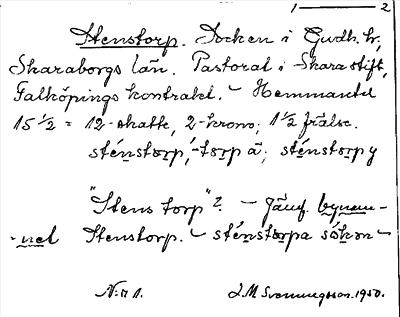 1 — 2
Stenstorp. Socken i Gudh. hd,
Skaraborgs län. Pastorat i Skara stift,
Falköpings kontrakt. – Hemmantal
15 1/2 = 12-skatte, 2-krono; 1 1/2 frälse.
sténstorp, -torp ä; sténstorp y
"Stens torp"? – Jämf. bynam-
net Stenstorp. – sténstorpa sökn –
N:r 1. J. M. Svenningsson. 1950.